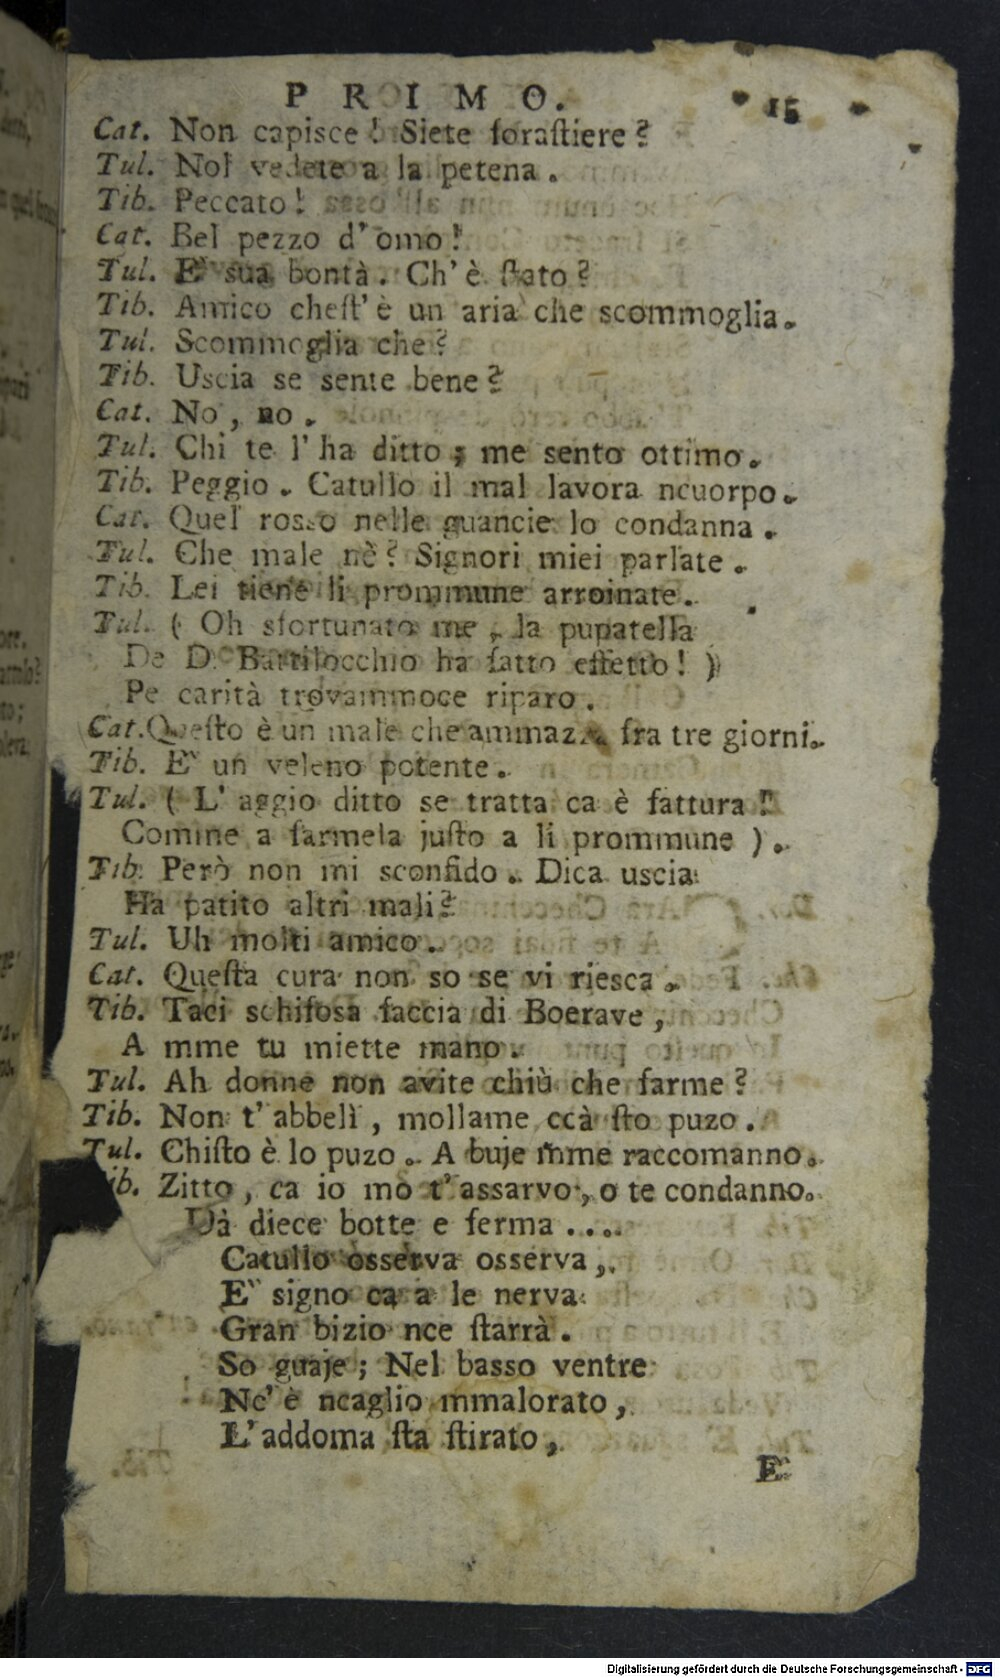 PRIMO. 15
Cat. Non capisce! Siete foraſtiere?
Tul. Nol vedete a la petena.
Tib. Peccato!
Cat. Bel pezzo d'omo!
Tul. E` sua bontà. Ch'è ſtato?
Tib. Amico cheſt'è un aria che scommoglia.
Tul. Scommoglia che?
Tib. Uscia se sente bene?
Cat. No, no.
Tul. Chi te l'ha ditto; me sento ottimo.
Tib. Peggio. Catullo il mal lavora ncuorpo.
Cat. Quel rosso nelle guancie lo condanna.
Tul. Che male nè? Signori miei parlate.
Tib. Lei tiene li prommune arroinate.
Tul. (Oh sfortunato me, la pupatella
De D. Battilocchio ha fatto effetto!)
Pe carità trovammoce riparo.
Cat. Queſto è un male che ammazza fra tre giorni.
Tib. E` un veleno potente.
Tul. (L'aggio ditto se tratta ca è fattura!
Comme a farmela juſto a li prommune).
Tib. Però non mi sconfido. Dica uscia
Ha patito altri mali?
Tul. Uh molti amico.
Cat. Queſta cura non so se vi riesca.
Tib. Taci schifosa faccia di Boerave,
A mme tu miette mano.
Tul. Ah donne non avite chiù che farme?
Tib. Non t'abbelì, mollame ccà ſto puzo.
Tul. Chiſto è lo puzo. A buje mme raccomanno.
Tib. Zitto, ca io mò t'assarvo, o te condanno.
Dà diece botte e ferma....
Catullo osserva osserva,
E` signo ca a le nerva
Gran bizio nce ſtarrà.
So guaje; Nel basso ventre
Nc'è ncaglio mmalorato,
L'addoma ſta ſtirato,
E
Digitalisierung gefördert durch die Deutsche Forschungsgemeinschaft - DFG